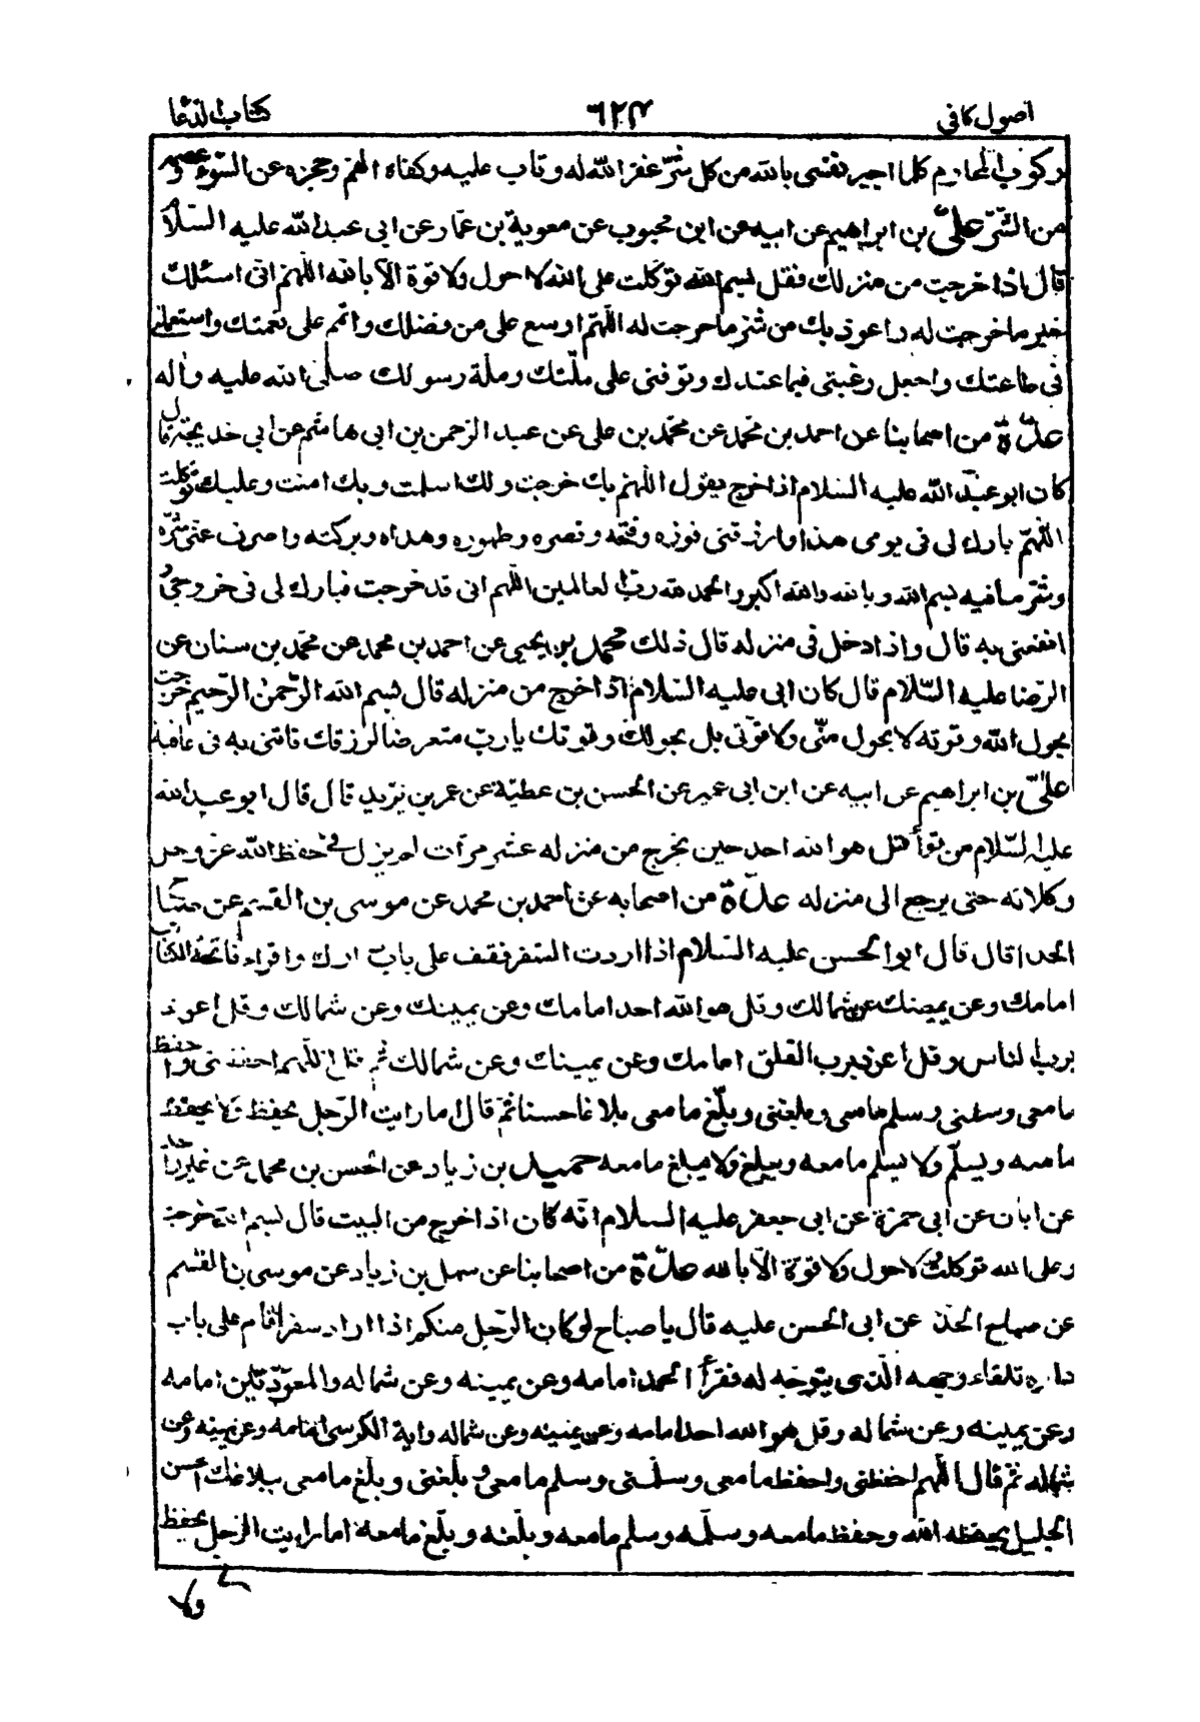 اصول كافى ٦٢٣ كتاب الدعا
وركوب المحارم كلها اجير نفسى بالله من كل شر غفر الله له وتاب عليه وكفاه الهم وحجزه عن السوء وعصمه
من الشر علىّ بن ابراهيم عن ابيه عن ابن محبوب عن معوية بن عمار عن ابى عبد الله عليه السلام
قال اذا خرجت من منزلك فقل بسم الله توكلت على الله لا حول ولا قوة الا بالله اللهم انى اسئلك
خير ما خرجت له واعوذ بك من شر ما خرجت له اللهم اوسع على من فضلك واتمم على نعمتك واستعملنى
فى طاعتك واجعل رغبتى فيما عندك وتوفنى على ملّتك وملة رسولك صلى الله عليه واله
عدّة من اصحابنا عن احمد بن محمد عن محمد بن على عن عبد الرحمن بن ابى هاشم عن ابى خديجة قال
كان ابو عبد الله عليه السلام اذا خرج يقول اللهم بك خرجت ولك اسلمت وبك امنت وعليك توكلت
اللهم بارك لى فى يومى هذا وارزقنى فوزه وفتحه ونصره وطهوره وهداه وبركته واصرف عنى شره
وشر ما فيه بسم الله وبالله والله اكبر والحمد لله رب العالمين اللهم انى قد خرجت فبارك لى فى خروجى و
انفعنى به قال واذا دخل فى منزله قال ذلك محمد بن يحيى عن احمد بن محمد عن محمد بن سنان عن
الرضا عليه السّلام قال كان ابى عليه السلام اذا خرج من منزله قال بسم الله الرحمن الرحيم خرجت
بحول الله وقوته لا بحول منّى ولا قوتى بل بحولك وقوتك يا رب متعرضا لرزقك فاتنى به فى عافية
علىّ بن ابراهيم عن ابيه عن ابن ابى عمير عن الحسن بن عطيّة عن عمر بن يزيد قال قال ابو عبد الله
عليه السّلام من قرأ قل هو الله احد حين يخرج من منزله عشر مرات لم يزل فى حفظ الله عز وجل
وكلائه حتى يرجع الى منزله عدّة من اصحابه عن احمد بن محمد عن موسى بن القسم عن صباح
الحذا قال قال ابو الحسن عليه السّلام اذا اردت السّفر فقف على باب دارك واقراء فاتحة الكتاب
امامك وعن يمينك وعن شمالك وقل هو الله احد امامك وعن يمينك وعن شمالك وقل اعوذ
برب الناس وقل اعوذ برب الفلق امامك وعن يمينك وعن شمالك ثم قل اللهم احفظنى واحفظ
ما معى وسلمنى وسلم ما معى وبلغنى وبلّغ ما معى بلاغا حسنا ثم قال اما رايت الرّجل يحفظ ولا يحفظ
ما معه ويسلّم ولا يسلم ما معه ويبلغ ولا يبلغ ما معه حميد بن زياد عن الحسن بن محمد عن غير واحد
عن ابان عن ابى حمزة عن ابى جعفر عليه السلام انه كان اذا خرج من البيت قال بسم الله خرجت
وعلى الله توكلت لا حول ولا قوة الّا بالله عدّة من اصحابنا عن سهل بن زياد عن موسى بن القسم
عن صباح الحذ عن ابى الحسن عليه قال يا صباح لو كان الرّجل منكم اذا اراد سفرا قام على باب
داره تلقاء وجهه الّذى يتوجّه له فقرأ الحمد امامه وعن يمينه وعن شماله والمعوّذتين امامه
وعن يمينه وعن شماله وقل هو الله احد امامه وعن يمينه وعن شماله واية الكرسى امامه وعن يمينه وعن
شماله ثم قال اللهم احفظنى واحفظ ما معى وسلّمنى وسلم ما معى وبلّغنى وبلّغ ما معى ببلاغك الحسن
الجليل يحفظه الله وحفظ ما معه وسلّمه وسلم ما معه وبلّغه وبلّغ ما معه اما رايت الرجل يحفظ
ولا